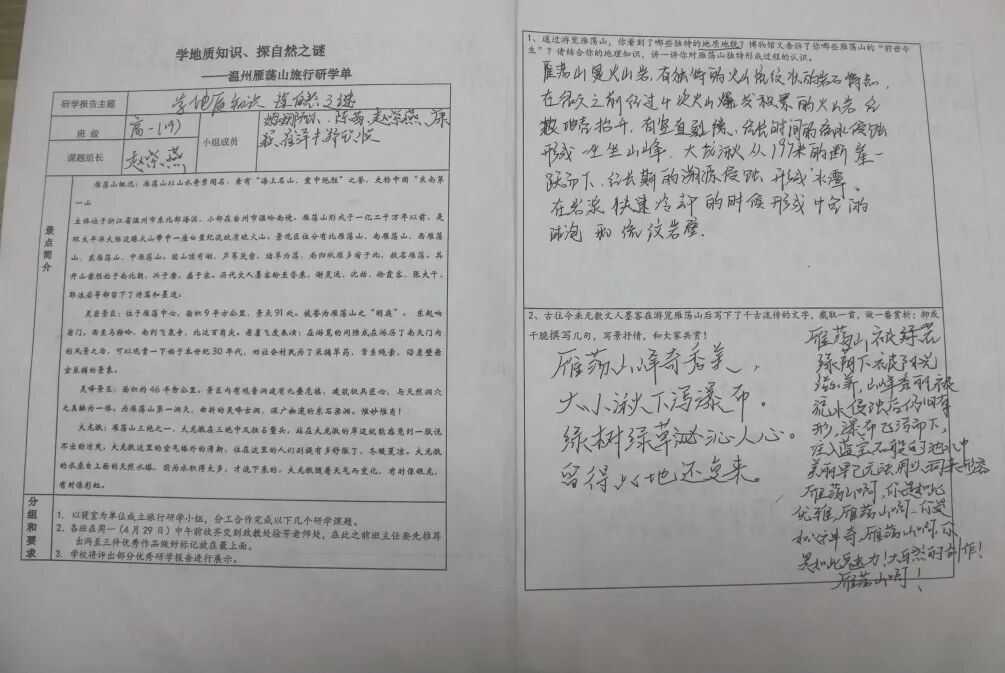 学地质知识、探自然之谜
——温州雁荡山旅行研学单
研学报告主题
学地质知识 探自然之谜
班 级
高一(19)
小组成员
陈 赵崇燕、
课题组长
赵崇燕
景点简介
雁荡山概况：雁荡山以山水奇秀闻名，素有“海上名山、寰中绝胜”之誉，史称中国“东南第
一山
主体位于浙江省温州市东北部海滨，小部在台州市温岭南境。雁荡山形成于一亿二千万年以前，是
环太平洋大陆边缘火山带中一座白垩纪流纹质破火山。景观区位分有北雁荡山、南雁荡山、西雁荡
山、东雁荡山、中雁荡山。因山顶有湖，芦苇茂密，结草为荡，南归秋雁多宿于此，故名雁荡。其
开山凿胜始于南北朝，兴于唐，盛于宋。历代文人墨客纷至沓来，谢灵运、沈括、徐霞客、张大千、
郭沫若等都留下了诗篇和墨迹。
灵岩景区：位于雁荡中心，面积 9 平方公里，景点 91 处。被誉为雁荡山之“明庭”。 东起响
岩门，西至马鞍岭，南到飞泉寺，北达百岗尖。悬崖飞度表演：在游览的间隙或在游历了南天门内
的风景之后，可以观赏一下始于本世纪 30 年代，旧社会村民为了采摘草药，常系绳索，沿崖壁悬
空采摘的景象。
灵峰景区：面积约 46 平方公里，景区内有观音洞建有九叠危楼，建筑极具匠心，与天然洞穴
之美融为一体，为雁荡山第一洞天。曲折的灵峰古洞，深广幽邃的东石梁洞。惟妙惟肖！
大龙湫：雁荡山三绝之一，大龙湫在三绝中又独占鳌头，站在大龙湫的岸边就能感觉到一股说
不出的凉爽，大龙湫这里的空气格外的清新，住在这里的人们别提有多舒服了，冬暖夏凉。大龙湫
的水来自上面的天然水塔，因为水积得太多，才流下来的。大龙湫随着天气而变化，有时像银龙，
有时像彩虹。
分组和要求
1. 以寝室为单位成立旅行研学小组，分工合作完成以下几个研学课题。
2. 各班在周一（4 月 29 日）中午前收齐交到政教处徐芳老师处，在此之前班主任要先推荐
出两至三件优秀作品做好标记放在最上面。
3. 学校将评出部分优秀研学报告进行展示。
1、通过游览雁荡山，你看到了哪些独特的地质地貌？博物馆又告诉了你哪些雁荡山的“前世今
生”？请结合你的地理知识，讲一讲你对雁荡山独特形成过程的认识。
雁荡山是火山岩，有独特的火山流纹状的岩石特点，
在很久之前经过十次火山爆发积累的火山岩 经
散地壳抬升，有竖直裂隙、经长时间的流水侵蚀
形成一坐坐山峰。大龙湫从197米的断崖一
跃而下，经长期的溯源侵蚀 形成水潭。
在岩浆快速冷却的时候形成中空的
球泡 和流纹岩壁．
2、古往今来无数文人墨客在游览雁荡山后写下了千古流传的文字，截取一首，做一番赏析；抑或
干脆撰写几句，写景抒情，和大家共赏！
雁荡山峰奇秀美，
大小湫下泻瀑布。
绿树绿草沁人心。
留得占地还复来。
雁荡山被绿茗
绿荫下被阳光
山峰秀丽被
流水侵蚀后仍旧有
形，瀑布飞泻而下，
注入蓝宝石般的池水中
美丽早已无法用以词来形容
雁荡山啊，你是如此
优雅，雁荡山啊，你是
如此神奇，雁荡山啊，你
是如此魅力！大自然的创作！
雁荡山啊！